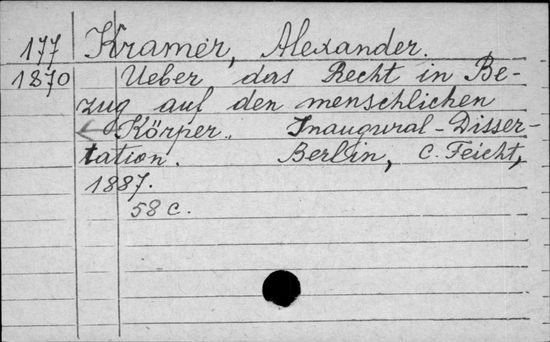 177 Kramer, Alexander.
1870 Ueber das Recht in Be-
zug auf den menschlichen
Körper. Inaugural-Disser-
tation. Berlin, C. Feicht,
1887.
58 c.